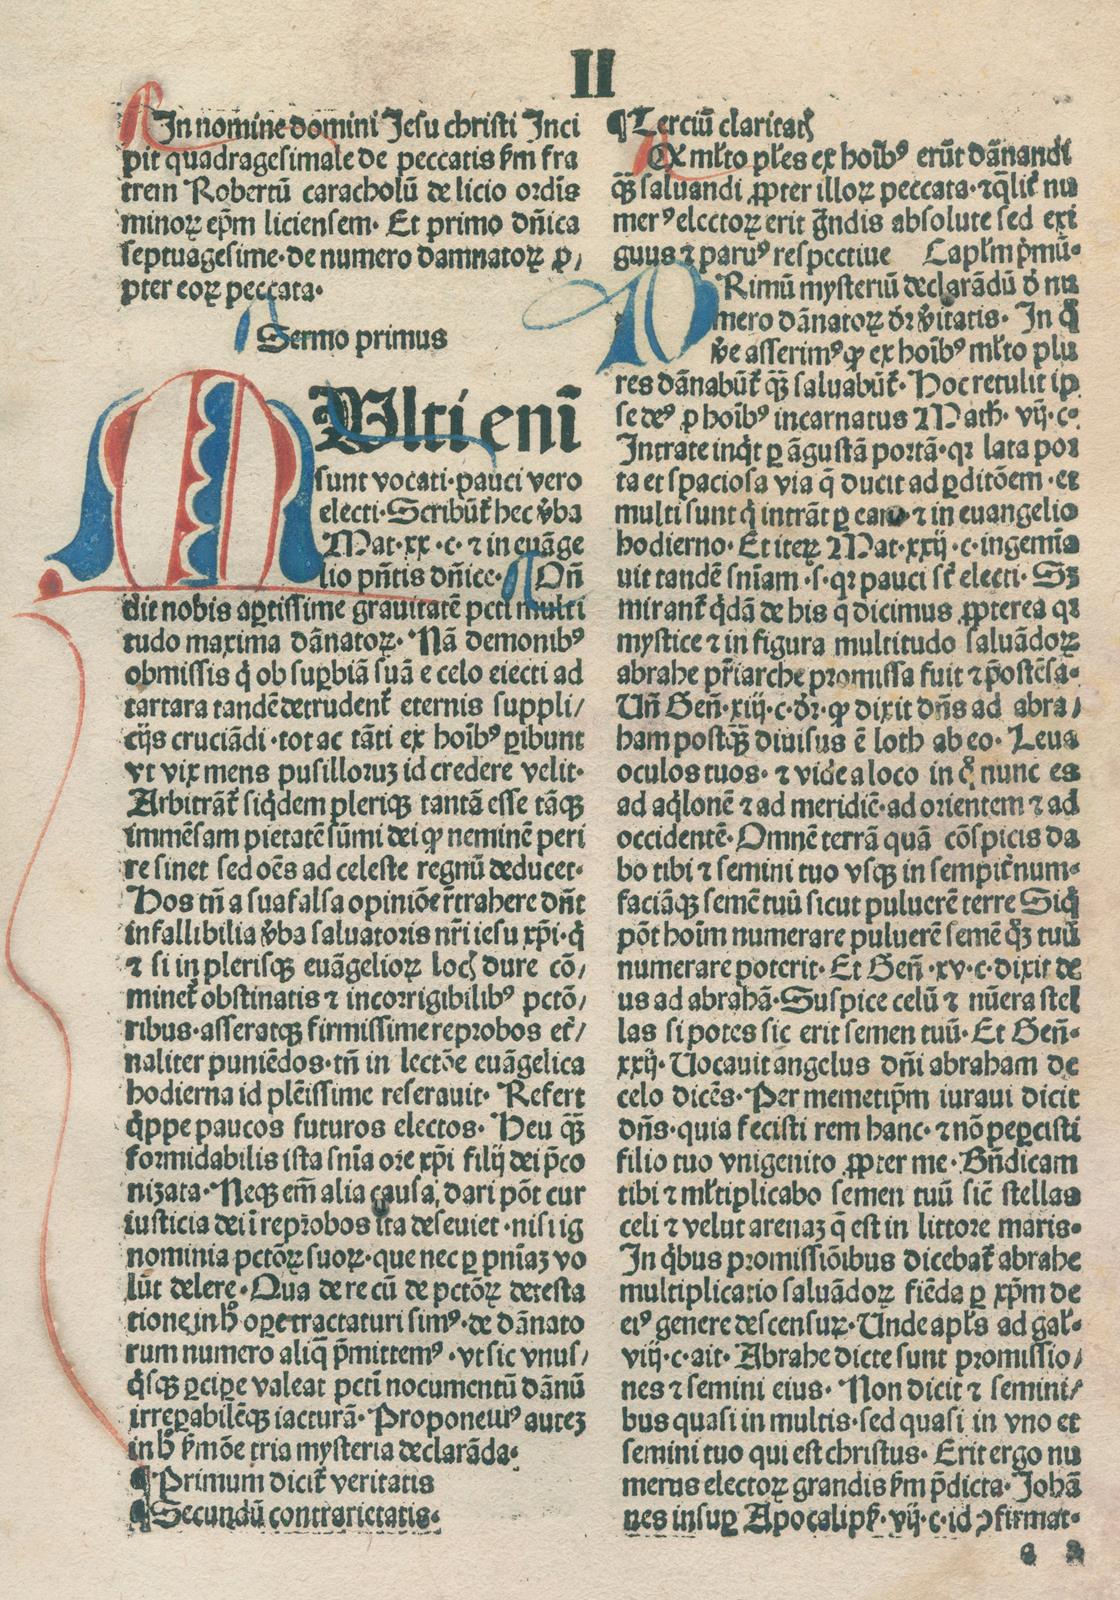 II
In nomine domini Jesu christi Inci
pit quadragesimale de peccatis ẜm fra
trem Robertū caracholū de licio ordīs
minoꝝ ep̄m liciensem. Et primo dn̄ica
septuagesime. de numero damnatoꝝ ꝓ/
pter eoꝝ peccata.
Sermo primus
MUlti eni᷑
sunt vocati. pauci vero
electi. Scribūt᷑ hec v̄ba
Mat. xx. c. ⁊ in euāge
lio pn̄tis dn̄ice. Oñ
dit nobis aꝑtissime grauitatē pcti multi
tudo maxima dānatoꝝ. Nā demonibꝰ
obmissis q̇ ob suꝑbiā suā e celo eiecti ad
tartara tandē detrudent᷑ eternis suppli/
cijs cruciādi. tot ac tāti ex hoībꝰ ꝑibunt
vt vix mens pusilloruꝫ id credere velit.
Arbitrāt᷑ siq̇dem pleriqꝫ tantā esse tāqꝫ
immēsam pietatē sūmi dei ꝙ neminē peri
re sinet sed oēs ad celeste regnū deducet.
Hos tn̄ a sua falsa opiniōe retrahere dn̄t
infallibilia v̄ba saluatoris nr̄i iesu xp̄i. q̇
⁊ si in plerisqꝫ euāgelioꝝ locꝭ dure cō/
minet᷑ obstinatis ⁊ incorrigibilibꝰ pctō/
ribus. asseratqꝫ firmissime reprobos et᷑/
naliter puniēdos. tn̄ in lectōe euāgelica
hodierna id plēissime reserauit. Refert
q̇ppe paucos futuros electos. Heu qꝫ̄
formidabilis ista sn̄ia ore xp̄i filij dei p̄co
nizata. Neqꝫ em̄ alia causa, dari pōt cur
iusticia dei ī reprobos ita deseuiet. nisi ig
nominia pctōꝝ suoꝝ. que nec ꝑ pn̄iaꝫ vo
lūt delere. Qua de re cū de pctōꝝ detesta
tione in h̊ opere tractaturi simꝰ. de dānato
rum numero aliq̄ p̄mittemꝰ. vt sic vnus/
q̇sqꝫ ꝑciꝑe valeat pcti nocumentū dānū
irreꝑabilēqꝫ iacturā. Proponemꝰ auteꝫ
in h̊ ẜmōe tria mysteria declarāda.
¶ Primum dicit᷑ veritatis
¶ Secundū contrarietatis.
¶ Terciū claritatꝭ
Qꝫ ml̄to pl̄es ex hoībꝰ erūt dānandi
qꝫ̄ saluandi ꝓpter illoꝝ peccata. ⁊ qlit᷑ nu
merꝰ electoꝝ erit g̈ndis absolute sed exi
guus ⁊ paruꝰ respectiue Capl̄m p̄mū.
PRimū mysteriū declarādū d̄ nu
mero dānatoꝝ dr̄ v̄itatis. In q̊
v̄e asserimꝰ ꝙ ex hoībꝰ ml̄to plu
res dānabūt᷑ qꝫ̄ saluabūt᷑. Hoc retulit ip
se deꝰ ꝓ hoībꝰ incarnatus Math. vij. c.
Intrate inq̇t ꝑ āgustā portā. qꝛ lata por
ta et spaciosa via q̄ ducit ad ꝑditōem. et
multi sunt q̇ intrāt ꝑ eam ⁊ in euangelio
hodierno. Et iteꝝ Mat. xxij. c. ingemīa
uit tandē sn̄iam. s. qꝛ pauci st̄ electi. Sꝫ
mirant᷑ q̇dā de his q̄ dicimus ꝓpterea qꝛ
mystice ⁊ in figura multitudo saluādoꝝ
abrahe pr̄iarche promissa fuit ⁊ p̄ostēsa.
Vn̄ Gen̄. xiij. c. dr̄. ꝙ dixit dn̄s ad abra/
ham postqꝫ̄ diuisus ē loth ab eo. Leua
oculos tuos. ⁊ vide a loco in q̊ nunc es
ad aq̇lonē ⁊ ad meridiē. ad orientem ⁊ ad
occidentē. Omnē terrā quā cōspicis da
bo tibi ⁊ semini tuo vsqꝫ in sempit᷑num.
faciāqꝫ semē tuū sicut puluerē terre Siq̇
pōt hoīm numerare puluerē semē qꝫ tuū
numerare poterit. Et Gen̄. xv. c. dixit de
us ad abrahā. Suspice celū ⁊ nūera stel
las si potes sic erit semen tuū. Et Gen̄.
xxij. Uocauit angelus dn̄i abraham de
celo dicēs. Per memetip̄m iuraui dicit
dn̄s. quia fecisti rem hanc. ⁊ nō peꝑcisti
filio tuo vnigenito ꝓpter me. Bn̄dicam
tibi ⁊ ml̄tiplicabo semen tuū sic̄ stellas
celi ⁊ velut arenaꝫ q̄ est in littore maris.
In q̇bus promissiōibus dicebat᷑ abrahe
multiplicatio saluādoꝝ fiēda ꝑ xp̄m de
eiꝰ genere descensuꝝ. Unde apl̄s ad gal̄.
viij. c. ait. Abrahe dicte sunt promissio/
nes ⁊ semini eius. Non dicit ⁊ semini/
bus quasi in multis. sed quasi in vno et
semini tuo qui est christus. Erit ergo nu
merus electoꝝ grandis ẜm p̄dicta. Johā
nes insuꝑ Apocalipẜ. vij. c. id ꝯfirmat.
a 2